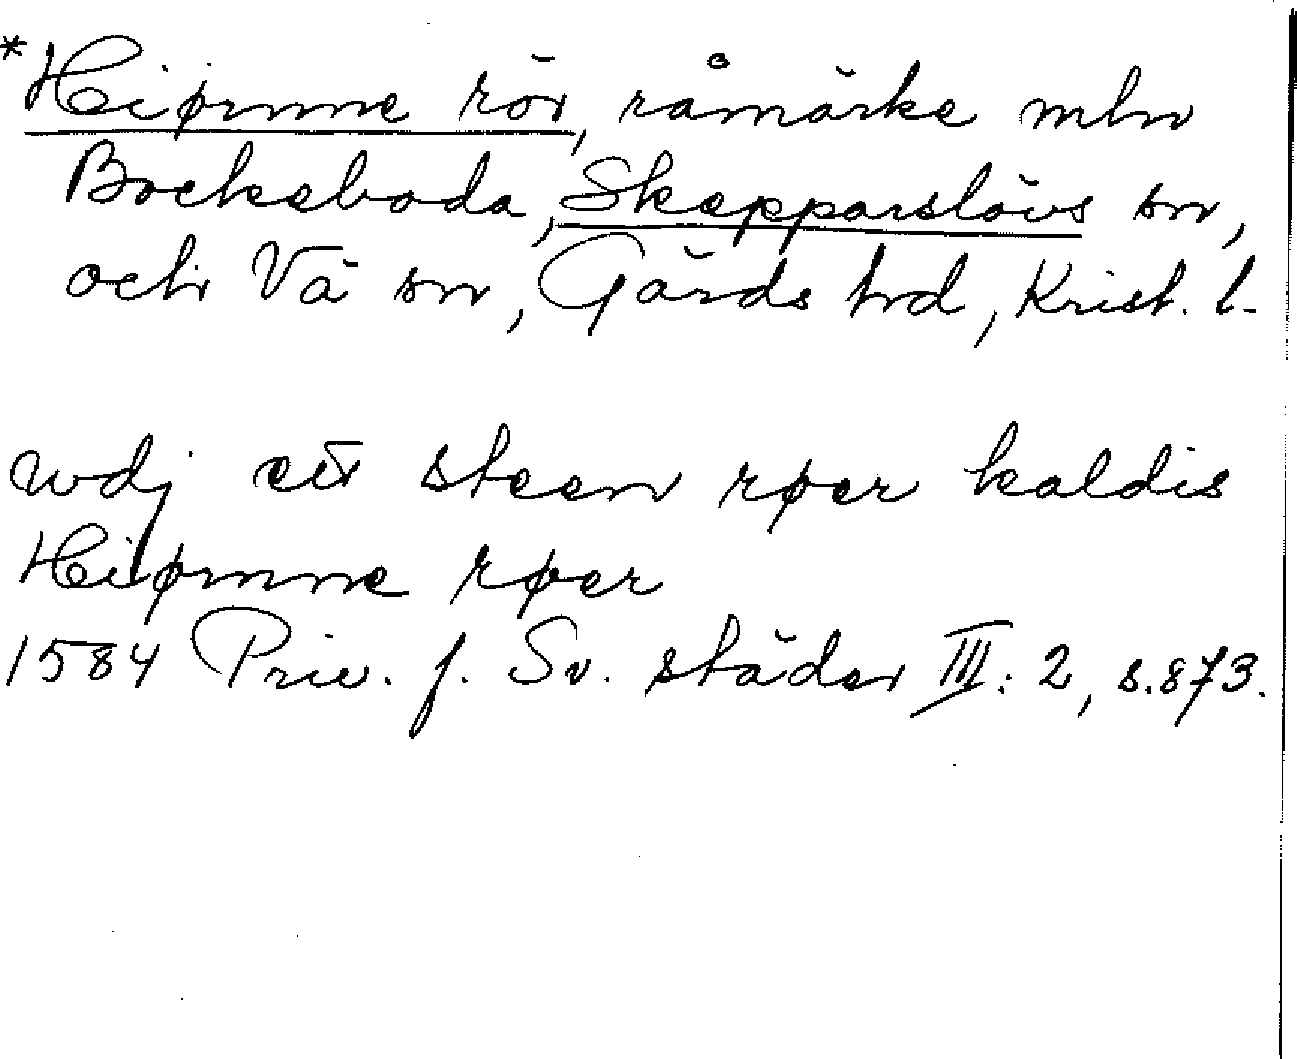 *Hiørnne rör, råmärke mln
Bockeboda, Skepparslövs sn,
och Vä sn, Gärds hd, Krist. l.
wdj ett steen røer kaldis
Hiørnne røer
1584 Priv. f. Sv. städer III: 2, s. 873.